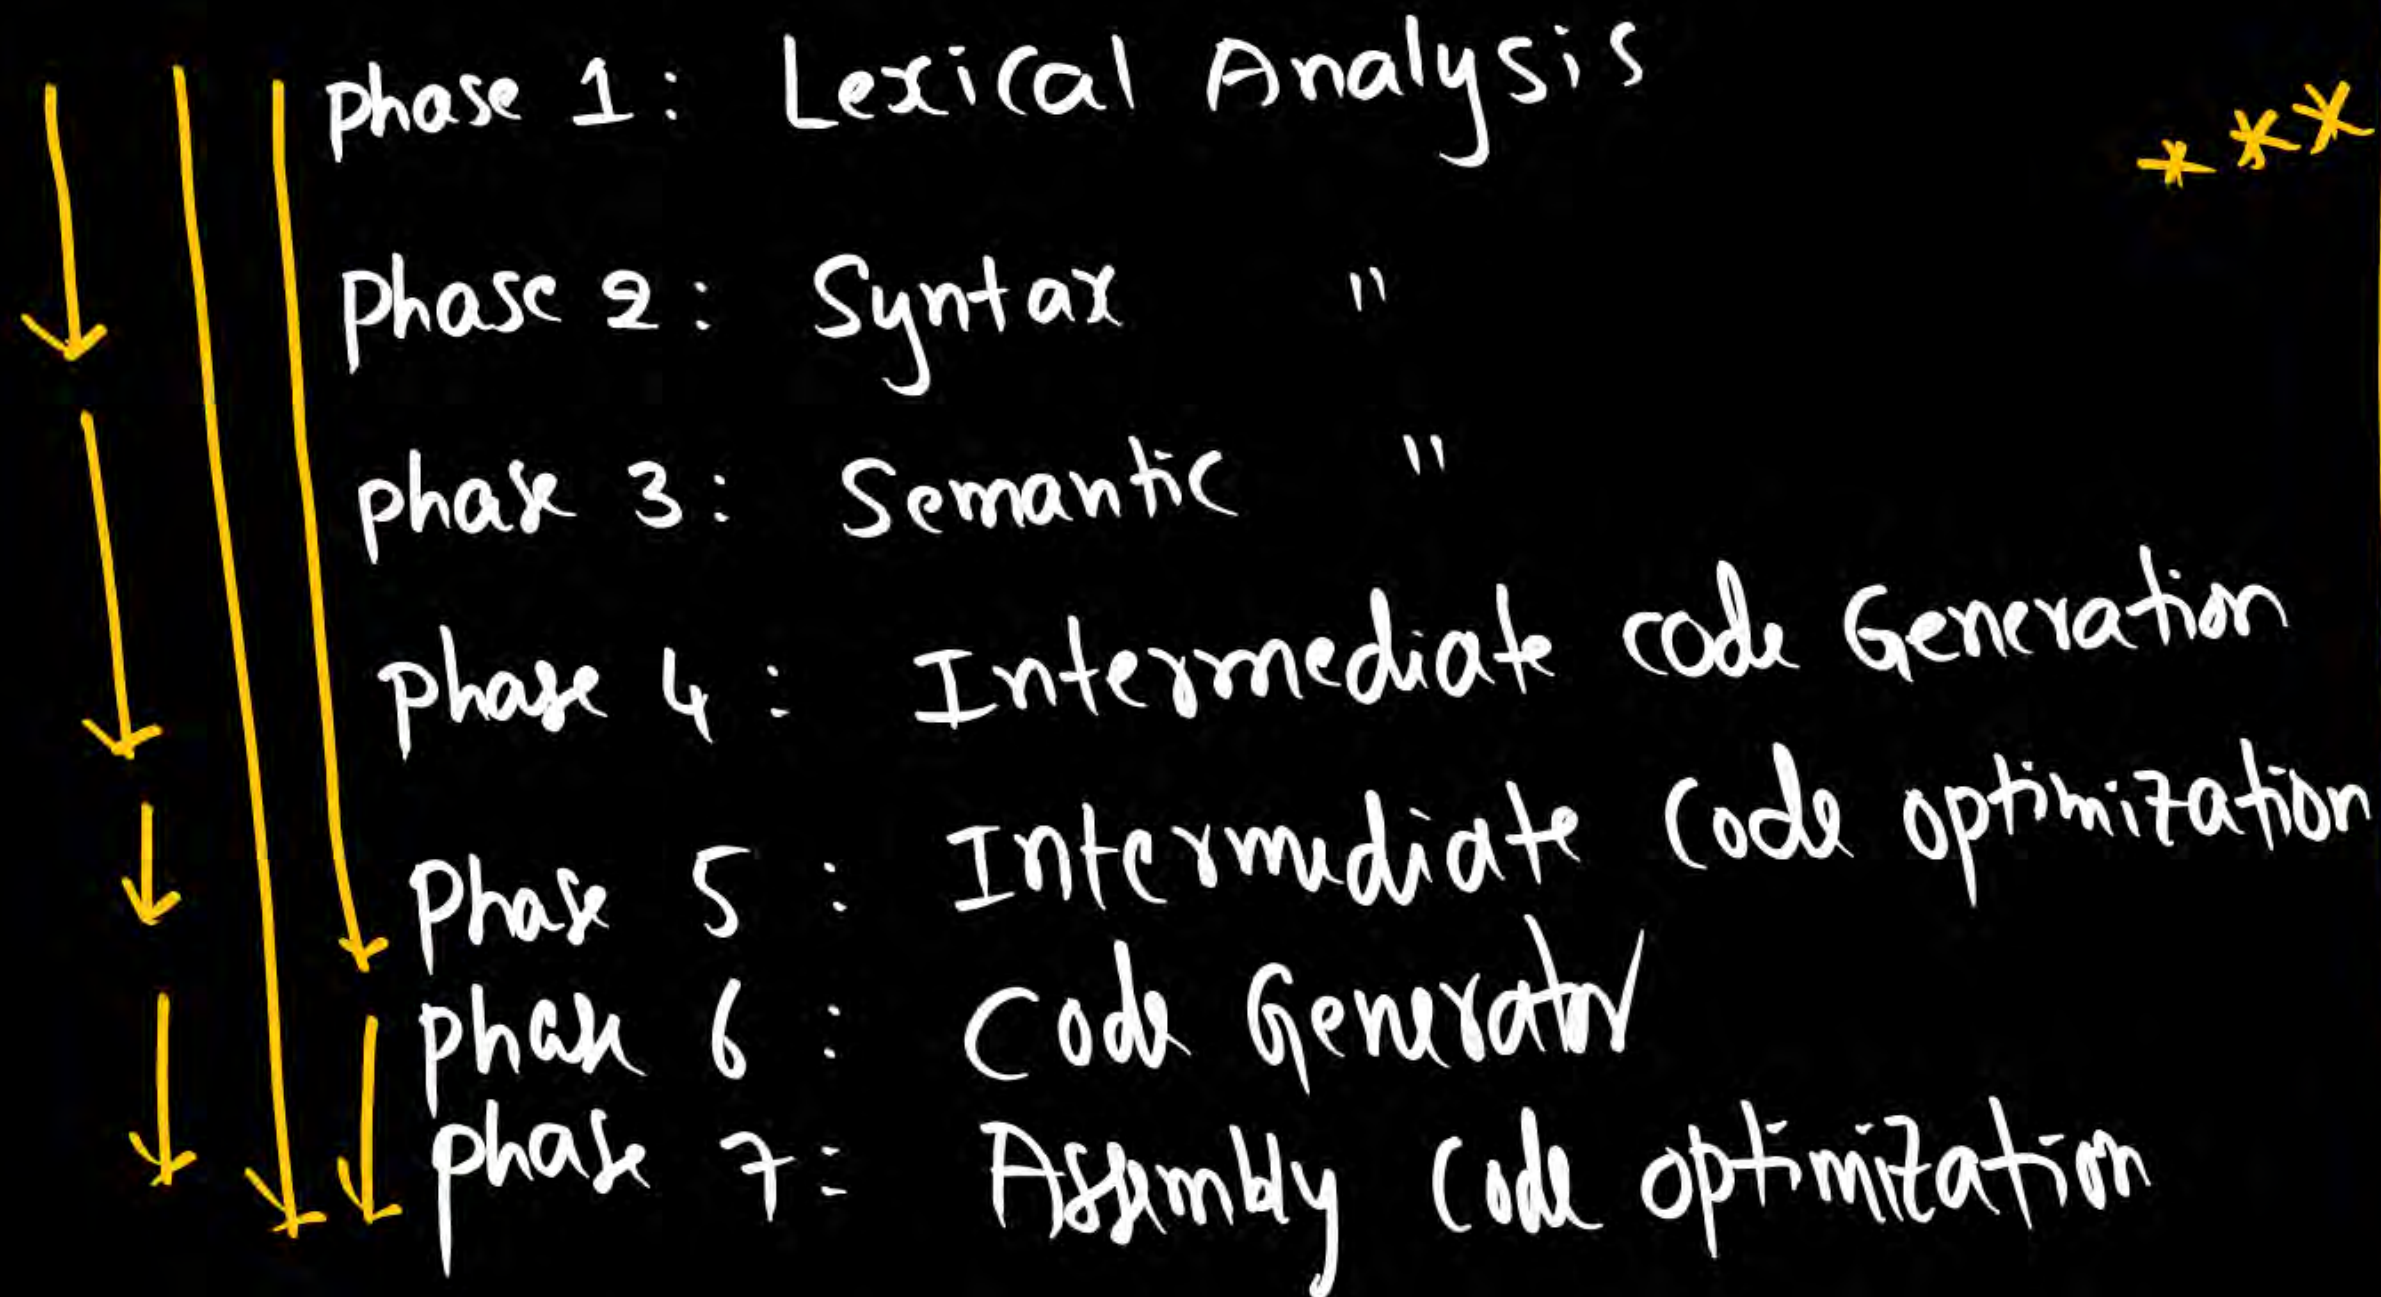 phase 1: Lexical Analysis
***
phase 2: Syntax "
phase 3: Semantic "
phase 4: Intermediate code Generation
phase 5: Intermediate code optimization
phase 6: Code Generator
phase 7: Assembly code optimization